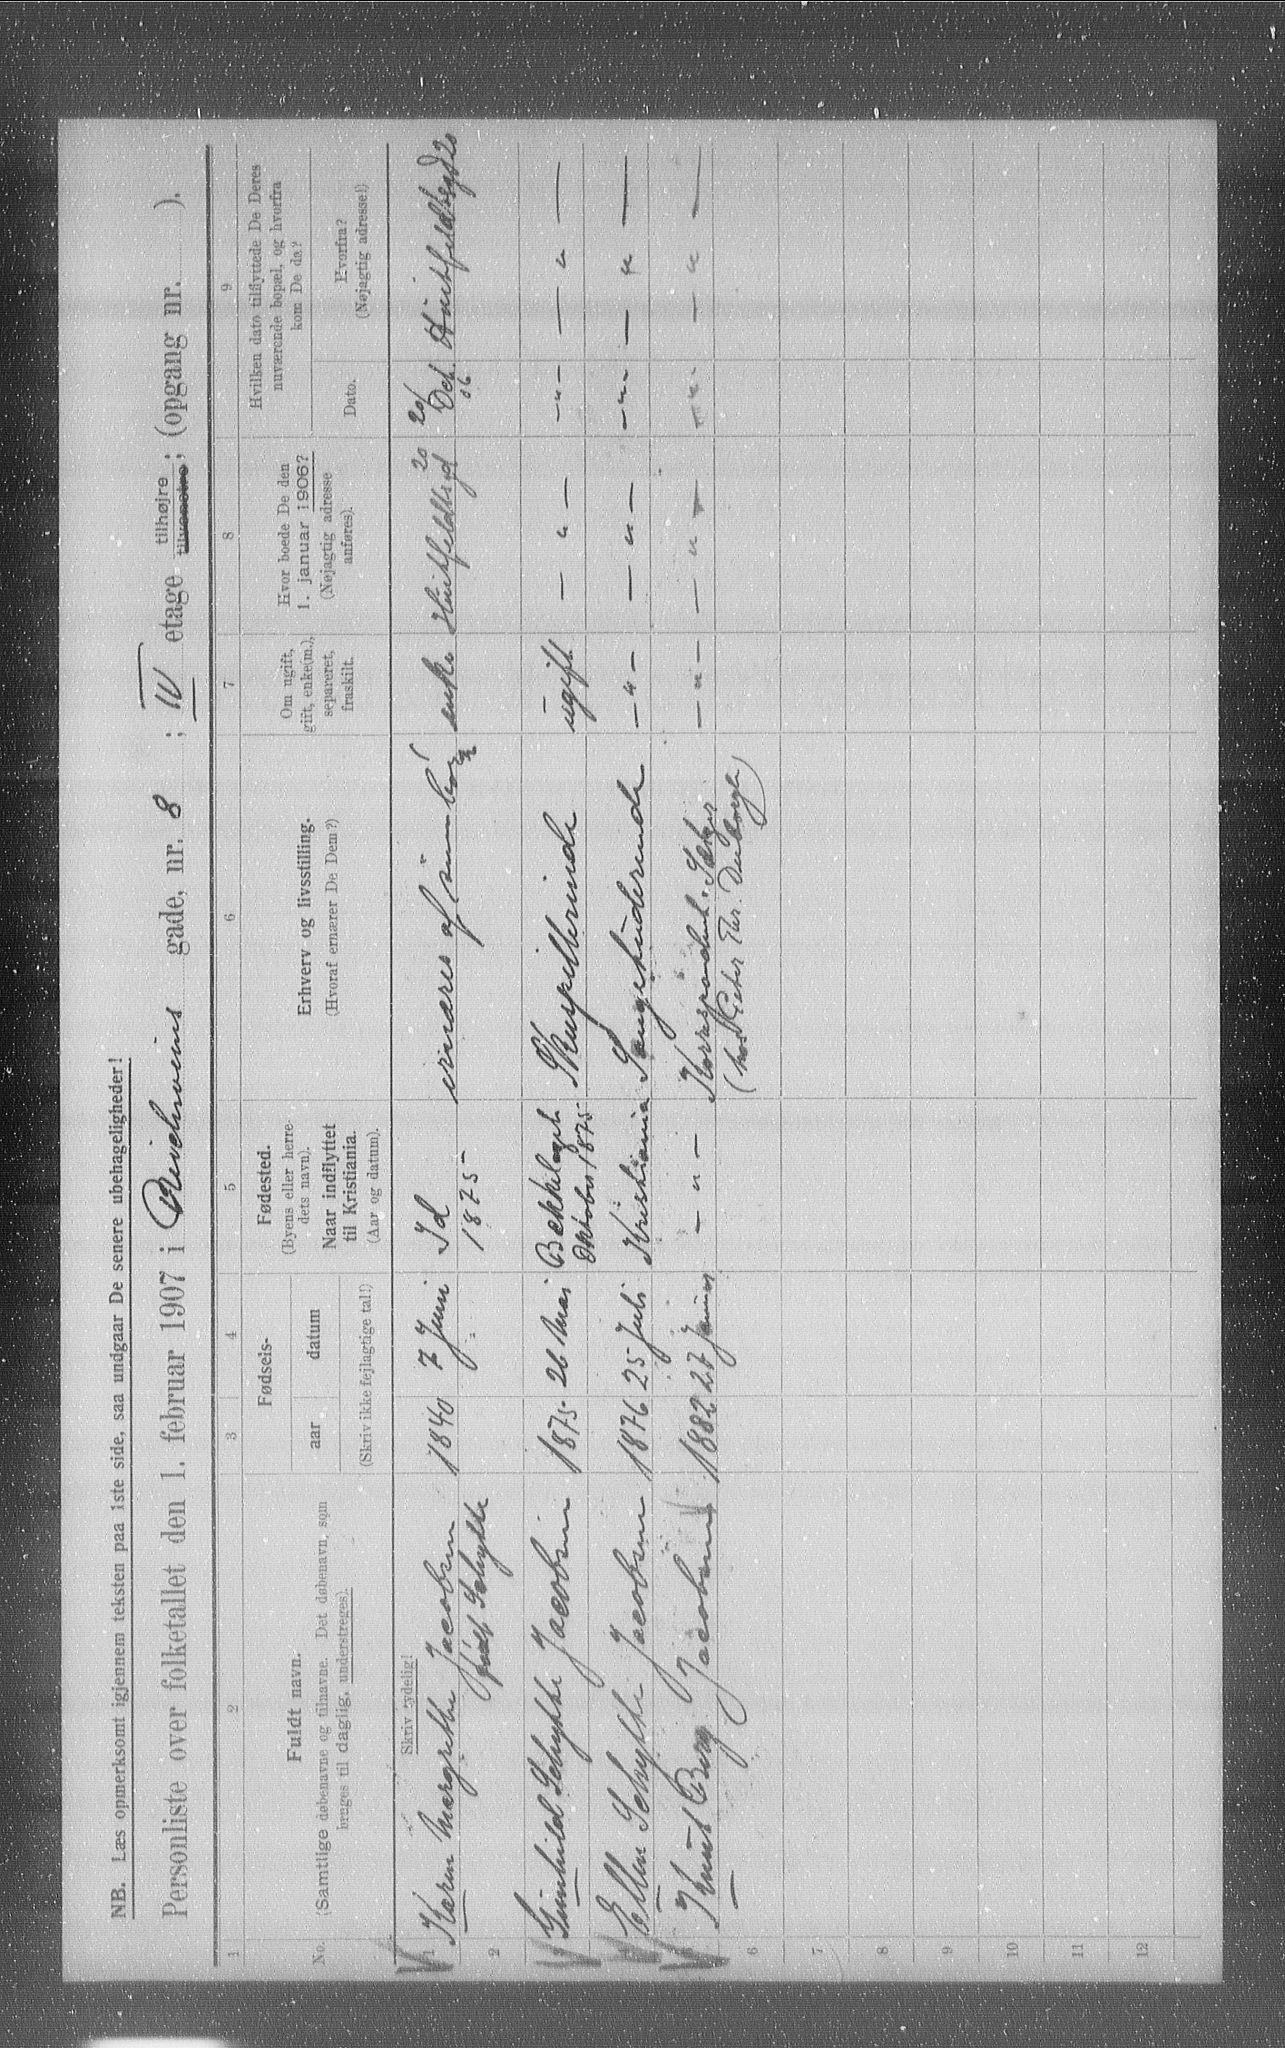 NB. Læs opmerksomt igjennem teksten paa 1ste side, saa undgaar De senere ubehageligheder!
Personliste over folketallet den 1. februar 1907 i Reichweins gade, nr. 8 ; IV etage tilhøjre tilvenstre; (opgang nr. ).
1 2 3 4 5 6 7 8 9
No.
Fuldt navn.
(Samtlige døbenavne og tilnavne. Det døbenavn, som
bruges til daglig, understreges).
Fødsels-
aar datum
(Skriv ikke fejlagtige tal!)
Fødested.
(Byens eller herre-
dets navn).
Naar indflyttet
til Kristiania.
(Aar og datum).
Erhverv og livsstilling.
(Hvoraf ernærer De Dem?)
Om ugift,
gift, enke(m.),
separeret,
fraskilt.
Hvor boede De den
1. januar 1906?
(Nøjagtig adresse
anføres).
Hvilken dato tilflyttede De Deres
nuværende bopæl, og hvorfra
kom De da?
Dato.
Hvorfra?
(Nøjagtig adresse!)
Skriv tydelig!
1 Karen Margrethe Jacobsen 1840 7 Juni Id ernæres af sine børn enke Huitfeldtsgd 20 20/ Okt. 06 Huitfeldtsgd 20
2 født Schytte 1875
3 Gunhild Schytte Jacobsen 1875 26 Mai Bekkelaget Skuespillerinde ugift — " — — " — — " —
Oktober 1875
4 Ellen Schytte Jacobsen 1876 25 Juli Kristiania Sangerinde — " — — " — — " — — " —
5 Knut Berg Jacobsen 1882 27 Januar — " — Korrespondent. — " — — " — — " — — " —
(hos Peter Thr. Duborgh)
6
7
8
9
10
11
12